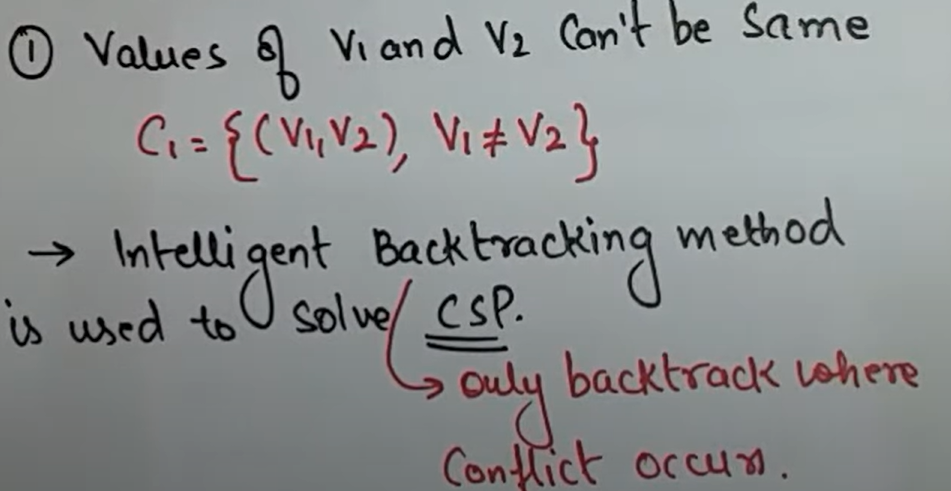 ① Values of V1 and V2 Can't be Same
C1 = {(V1, V2), V1 ≠ V2}
→ Intelligent Backtracking method
is used to solve CSP.
↳ only backtrack where
Conflict occurs.